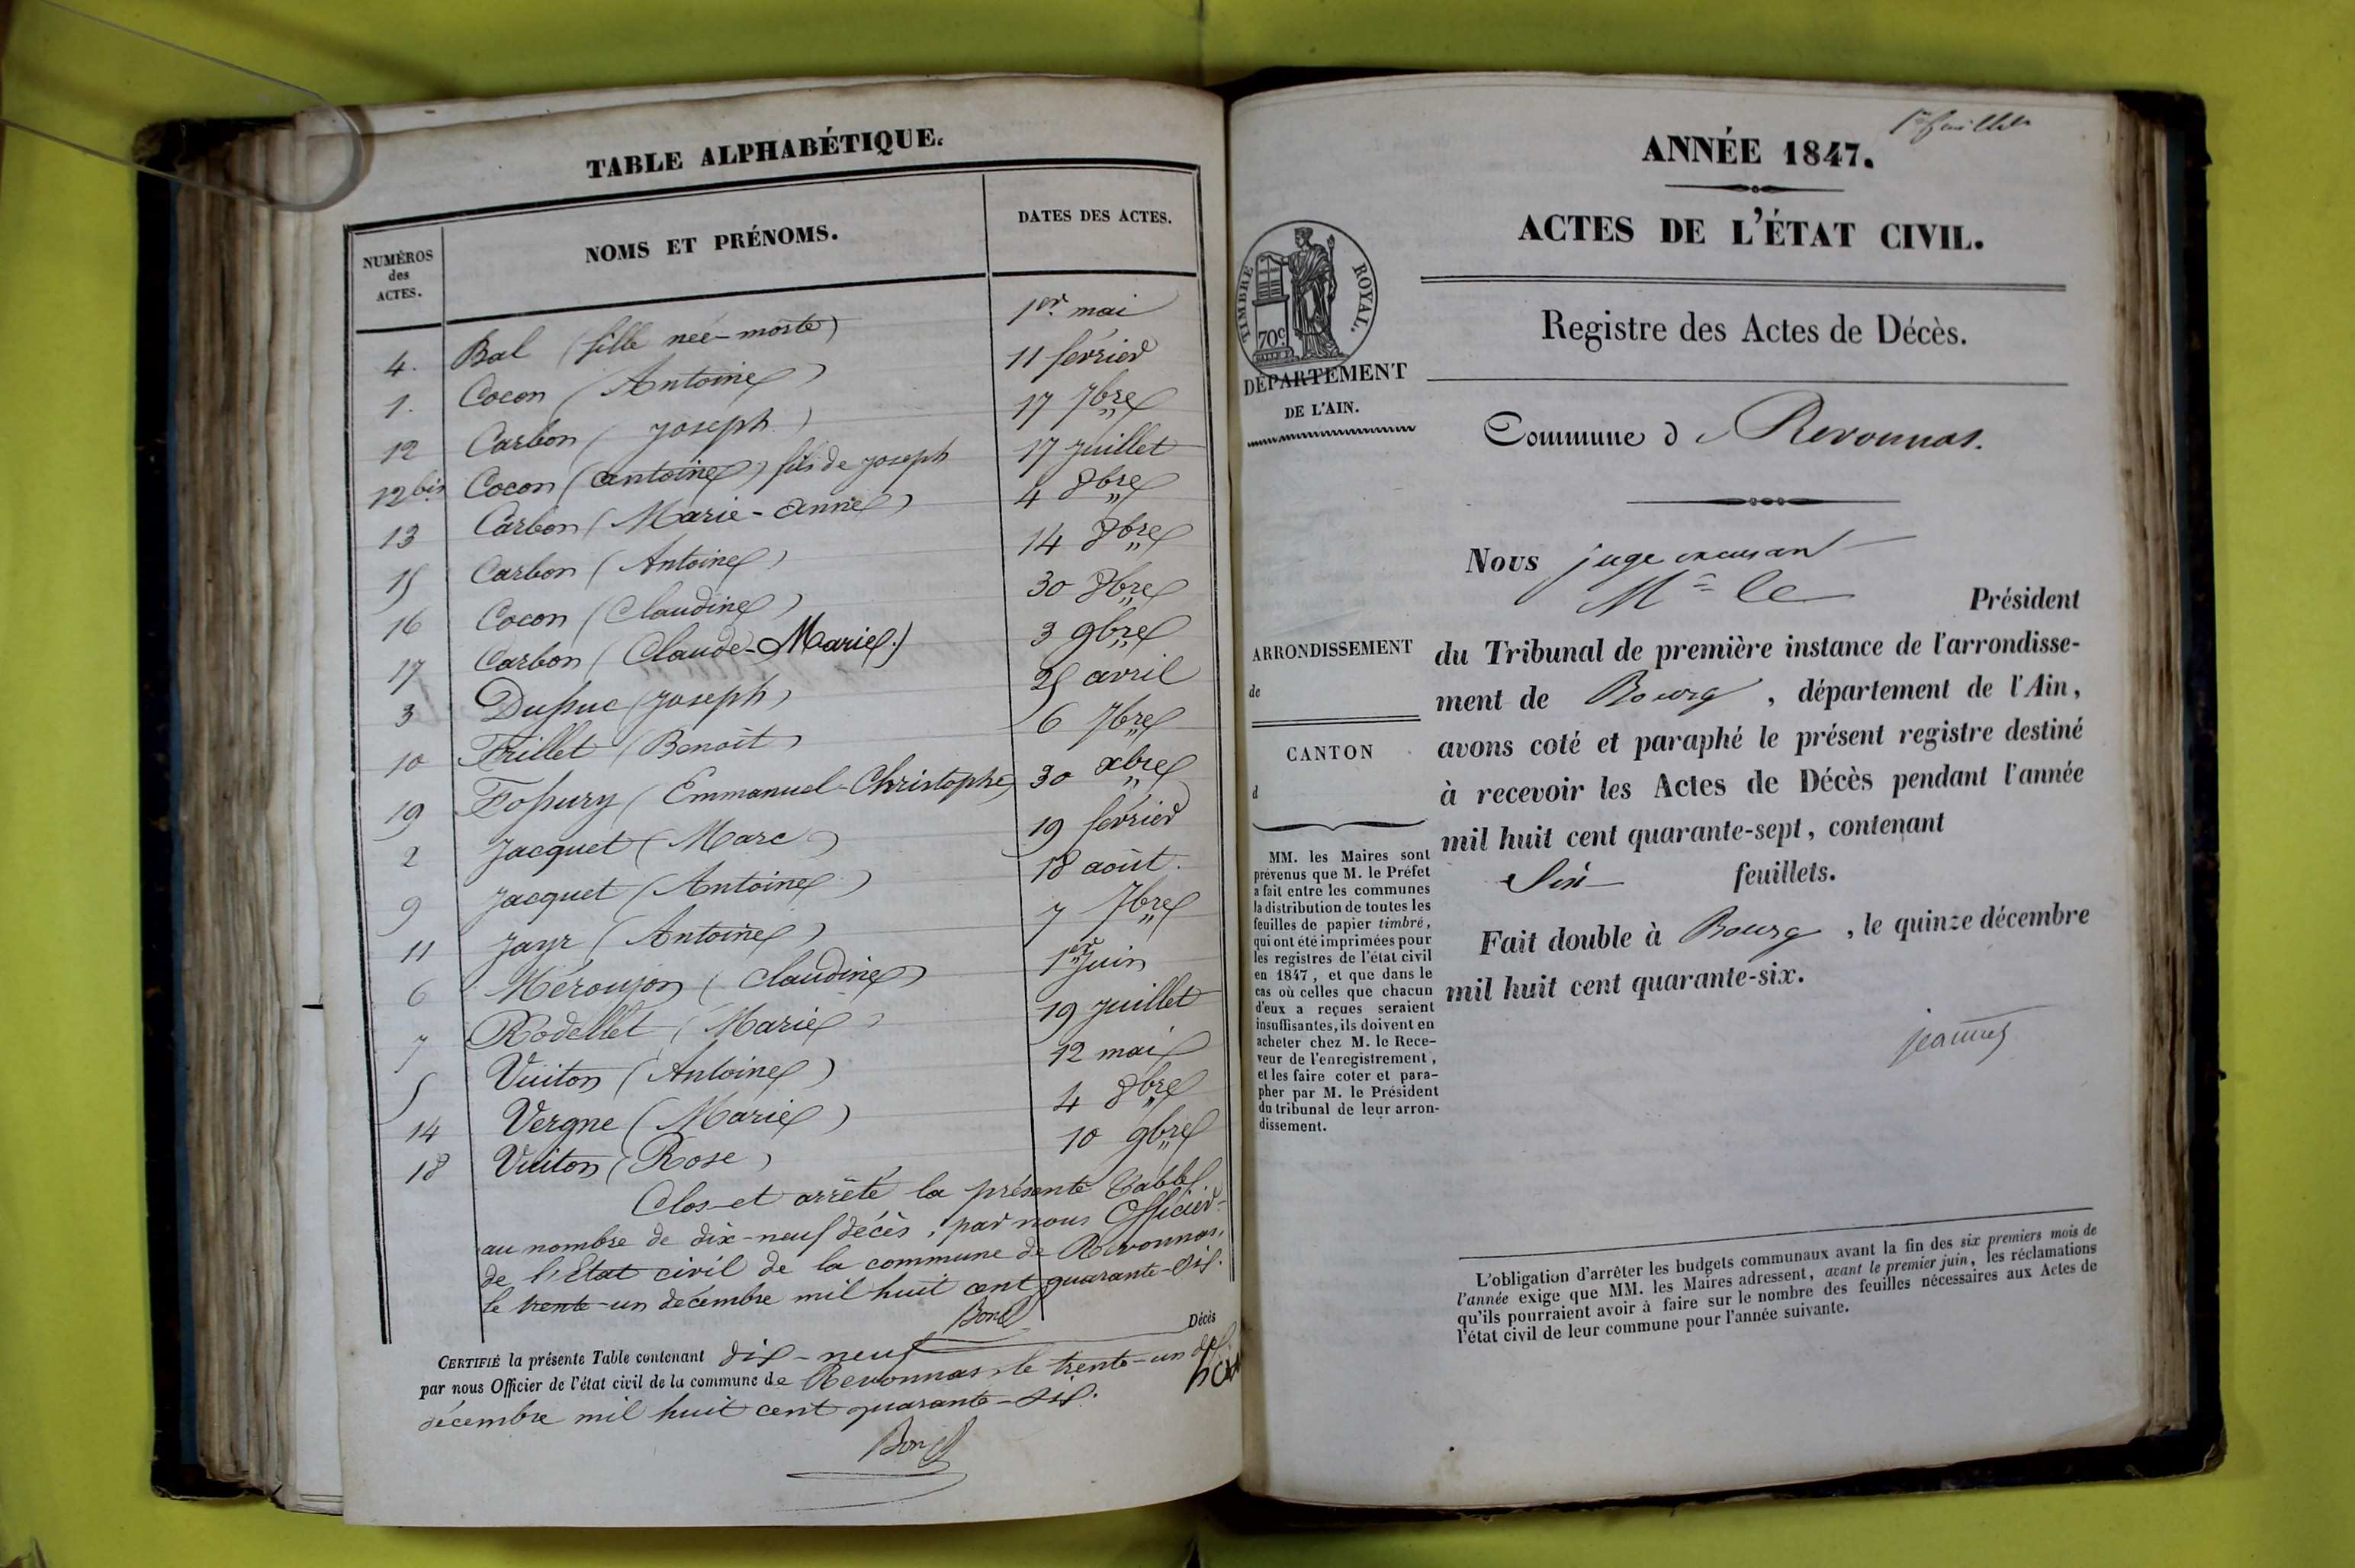 TABLE ALPHABÉTIQUE.
NUMÉROS des ACTES. NOMS ET PRÉNOMS. DATES DES ACTES.
4. Bal (fille née-morte) 1er mai
1. Cocon (Antoine) 11 février
12 Carbon (Joseph) 17 7bre
12 bis Cocon (antoine) fils de Joseph 17 Juillet
13 Carbon (Marie-Anne) 4 8bre
15 Carbon (Antoine) 14 8bre
16 Cocon (Claudine) 30 8bre
17 Carbon (Claude-Marie.) 3 9bre
3 Dupuc (Joseph) 25 avril
10 Frillet (Benoit) 6 7bre
19 Fopury (Emmanuel-Christophe) 30 xbre
2 Jacquet (Marc) 19 février
9 Jacquet (Antoine) 18 août.
11 Jayr (Antoine) 7 7bre
6 Méroujon (Claudine) 1er Juin
7 Rodellet (Marie) 19 Juillet
5 Vuiton (Antoine) 12 mai
14 Vergne (Marie) 4 8bre
18 Vuiton (Rose) 10 9bre
Clos et arrêté la présente Table
au nombre de dix-neuf décès, par nous Officier
de l'Etat civil de la commune de Revonnas,
le trente-un décembre mil huit cent quarante-six.
Décès
CERTIFIÉ la présente Table contenant dix-neuf
par nous Officier de l'état civil de la commune de Revonnas le trente-un
décembre mil huit cent quarante-six.
1er feuillet
ANNÉE 1847.
ACTES DE L'ÉTAT CIVIL.
TIMBRE ROYAL.
70c
Registre des Actes de Décès.
DÉPARTEMENT
DE L'AIN.
Commune d Revonnas.
Nous juge
Mr le Président
ARRONDISSEMENT
de
CANTON
d
du Tribunal de première instance de l'arrondisse-
ment de Bourg, département de l'Ain,
avons coté et paraphé le présent registre destiné
à recevoir les Actes de Décès pendant l'année
mil huit cent quarante-sept, contenant
Six feuillets.
Fait double à Bourg, le quinze décembre
mil huit cent quarante-six.
MM. les Maires sont
prévenus que M. le Préfet
a fait entre les communes
la distribution de toutes les
feuilles de papier timbré,
qui ont été imprimées pour
les registres de l'état civil
en 1847, et que dans le
cas où celles que chacun
d'eux a reçues seraient
insuffisantes, ils doivent en
acheter chez M. le Rece-
veur de l'enregistrement,
et les faire coter et para-
pher par M. le Président
du tribunal de leur arron-
dissement.
L'obligation d'arrêter les budgets communaux avant la fin des six premiers mois de
l'année exige que MM. les Maires adressent, avant le premier juin, les réclamations
qu'ils pourraient avoir à faire sur le nombre des feuilles nécessaires aux Actes de
l'état civil de leur commune pour l'année suivante.